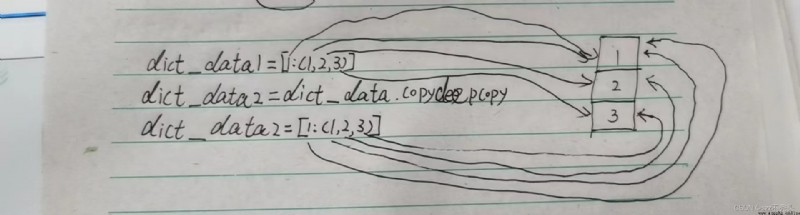 dict_data1=[1:(1,2,3)]
dict_data2=dict_data.copydeepcopy
dict_data2=[1:(1,2,3)]
1
2
3